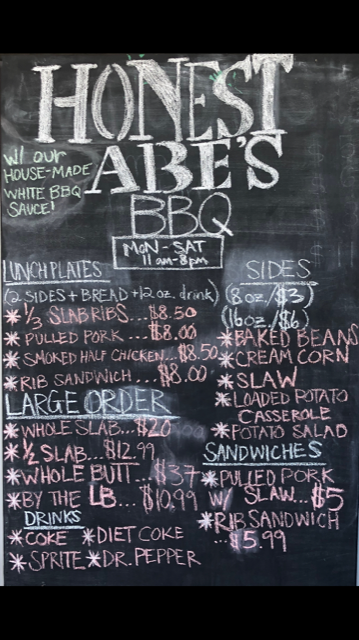 HONEST
ABE'S
BBQ
W/ OUR
HOUSE-MADE
WHITE BBQ
SAUCE!
MON - SAT
11am-8pm
LUNCH PLATES
(2 SIDES + BREAD + 12oz. drink)
* 1/3 SLAB RIBS... $8.50
* PULLED PORK ... $8.00
* SMOKED HALF CHICKEN... $8.50
* RIB SANDWICH ... $8.00
LARGE ORDER
* WHOLE SLAB... $20
* 1/2 SLAB... $12.99
* WHOLE BUTT ... $37
* BY THE LB... $10.99
DRINKS
* COKE * DIET COKE
* SPRITE * DR. PEPPER
SIDES
(8oz./$3)
(16oz./$6)
* BAKED BEANS
* CREAM CORN
* SLAW
* LOADED POTATO
CASSEROLE
* POTATO SALAD
SANDWICHES
* PULLED PORK
W/ SLAW... $5
* RIB SANDWICH
... $5.99